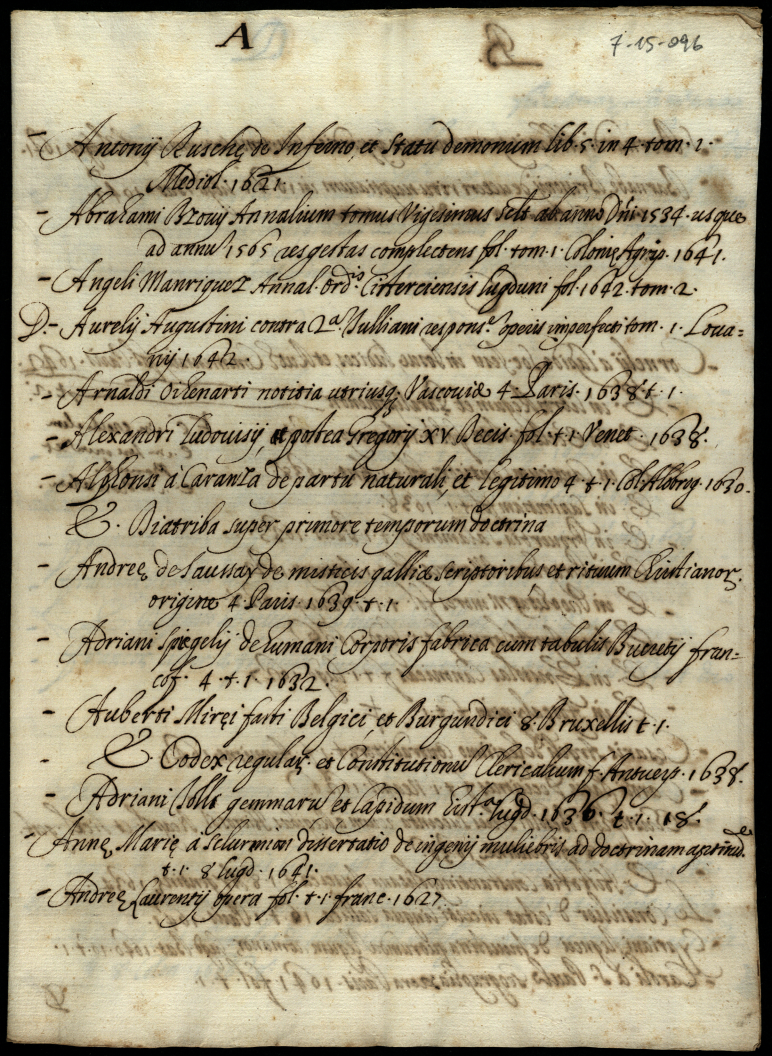 A
7-15-096
- Antonij Rusche de Inferno, et Statu demonum lib. 5 in 4. tom. 1.
Mediol. 1621.
- Abrahami Bzovij Annalium tomus Vigesimus scilt ab anno Dñi 1534. usque
ad annũ 1565 res gestas complectens fol. tom. 1. Colonię Agrip. 1641.
- Angeli Manriquez Annal. Ord.s Cisterciensis lugduni fol. 1642. tom. 2.
D.- Aurelij Augustini contra 2.ª Julliani respons.e operis imperfecti tom. 1. Lova=
nij 1642.
- Arnaldi Oihenarti notitia utriusq. Vasconiæ 4. Paris. 1638. t. 1.
- Alexandri ludovisij, et postea Gregorij XV Decis. fol. t. 1. Venet. 1638.
- Alphonsi à Caranza de partu naturali, et legitimo 4. t. 1. Col. Allobrog. 1630.
&. Diatriba super primore temporum doctrina
- Andreę de Saussay de misticis galliæ scriptoribus et rituum Christianor.
origine 4. Paris. 1639. t. 1.
- Adriani Spiegelij de humani Corporis fabrica cum tabulis Bucretij fran=
cof. 4. t. 1. 1632.
- Auberti Miręi fasti Belgici, et Burgundici 8. Bruxellis t. 1.
- &. Codex regular. et Constitutionũ Clericalium f. Antuerp. 1638.
- Adriani Tollt gemmarũ, et Lapidum Hist.ª lugd. 1636. t. 1. 18.
- Annę Marię a Schurman dissertatio de ingenij muliebris ad doctrinam aptitud.e
t. 1. 8. lugd. 1641.
- Andreę Laurentij opera fol. t. 1. franc. 1627.